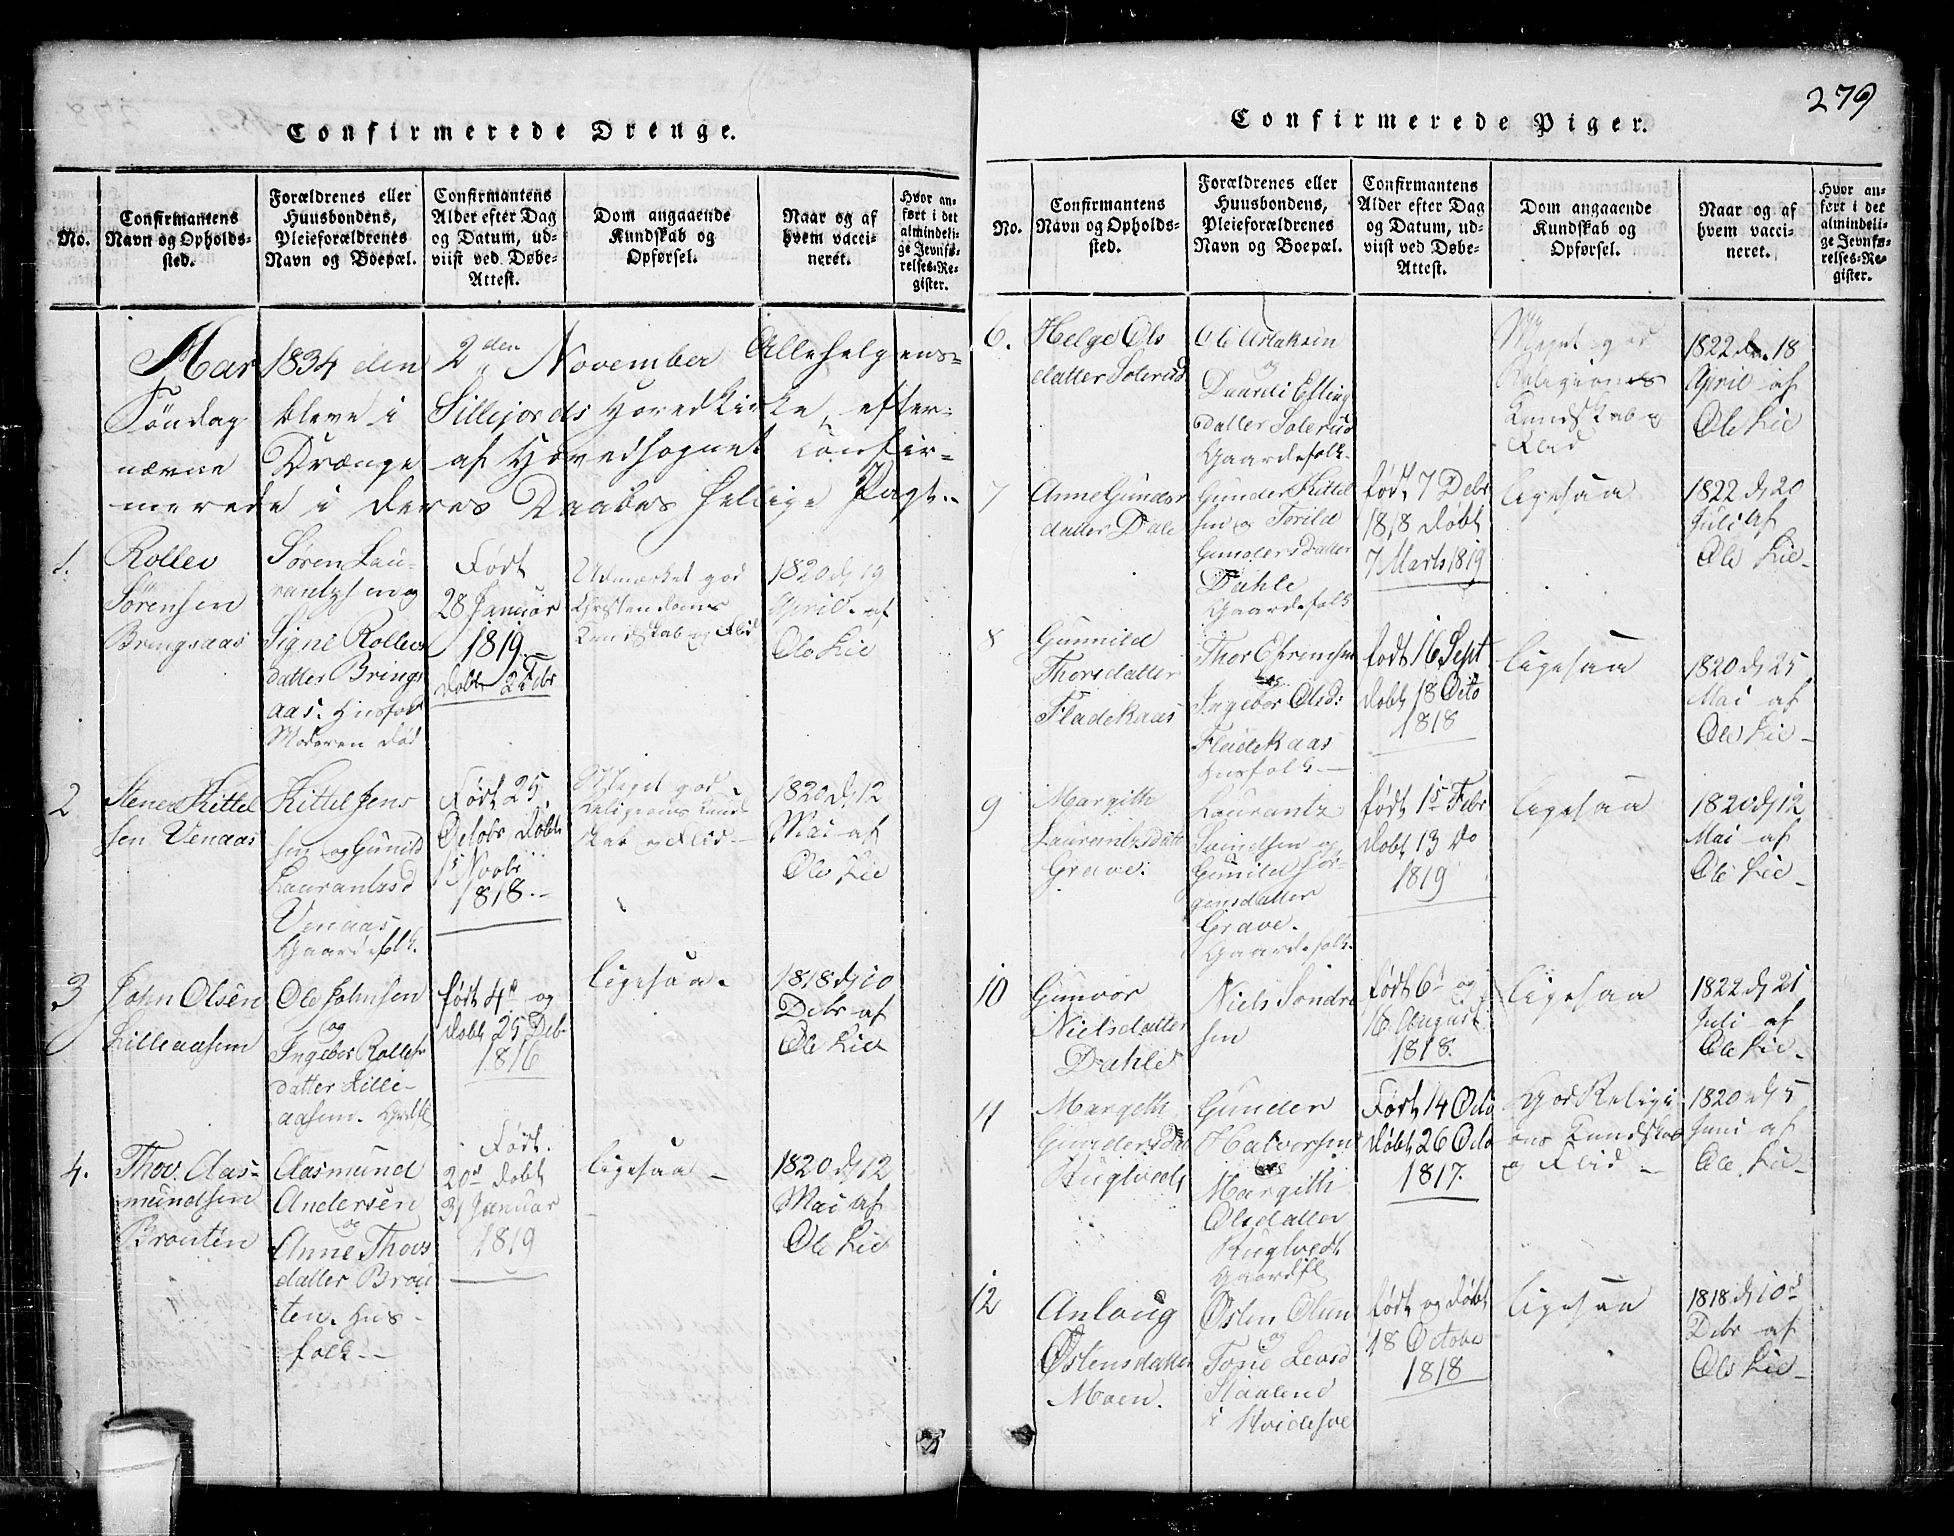 Confirmerede Drenge.
No.
Confirmantens
Navn og Opholds-
sted.
Forældrenes eller
Huusbondens,
Pleieforældrenes
Navn og Boepæl.
Confirmantens
Alder efter Dag
og Datum, ud-
viist ved Døbe-
Attest.
Dom angaaende
Kundskab og
Opførsel.
Naar og af
hvem vacci-
neret.
Hvor an-
ført i det
almindeli-
ge Jevnfø-
relses-Re-
gister.
Aar 1834 den 2den November Allehelgens-
Søndag bleve i Sillejords Hovedkirke, efter-
nævne Drænge af Hovedsognet confir-
merede i deres Daabes hellige Pagt.-
1.
Rollev
Sørensen
Bringsaas
Søren Lau-
rantzsen og
Signe Rollevs
datter Brings
aas. Husfolk
Moderen død
Født
28 Januar
1819.-
Døbt 2 Febr
Udmærket god
Christendoms
Kundskab og Flid
1820 d. 19
April. af
Ole Lie
2
Stener Kittel
sen Venaas
Kittel Jens
sen og Gunild
Laurantzsd
Venaas
Gaardefolk.
Født 25
Octobr, Døbt
15 Novbr
1818.-
Meget god
Religions Kund
skab og Flid-
1820 d. 12
Mai af
Ole Lie
3
John Olsen
Lilleaasen
Ole Johnsen
og
Ingebor Rollefs
datter Lille-
aasen.
født 4de og
døbt 25 Debr
1816
ligesaa.
1818 d. 10
Debr af
Ole Lie
4.
Thov. Aas-
mundsen
Brouten
Aasmund
Andersen
og
Anne Thovs
datter Brou
ten. Hus-
folk.-
Født.
20de døbt
31 Januar
1819
ligesaa-
1820 d. 12
Mai af
Ole Lie
279
Confirmerede Piger.
No.
Confirmantens
Navn og Opholds-
sted.
Forældrenes eller
Huusbondens,
Pleieforældrenes
Navn og Boepæl.
Confirmantens
Alder efter Dag
og Datum, ud-
viist ved Døbe-
Attest.
Dom angaaende
Kundskab og
Opførsel.
Naar og af
hvem vacci-
neret.
Hvor an-
ført i det
almindeli-
ge Jevnfø-
relses-Re-
gister.
6.
Helge Ols
datter Solerud
Ole Aslaksen
og
datter Solerud
Gaardefolk.
Meget god
Religions
Kundskab og
Flid
1822 d. 18
April af
Ole Lie
7
Anne Gunder
datter Dale
Gunder Kittel
sen og Torild
Gundersdatter
Dahle
Gaardefolk
født 7 Debr
1818 døbt
7 Marts 1819
ligesaa
1822 d. 20
Juli af
Ole Lie-
8
Gunnild
Thorsdatter
Fladekaas
Thor
og
Ingebor Olsd:
Fladekaas
Husfolk.-
født 16 Sept
døbt 18 Octo
1818
ligesaa
1820 d. 25
Mai af
Ole Lie-
9
Margith
Laurantzdatter
Grave.
Laurantz
Svendsen og
Gunild Jør-
gensdatter
Grave.
Gaardefolk.
født 15 Febr
døbt 13 Do
1819
ligesaa
1820 d. 12
Mai af
Ole Lie-
10
Gunvor
Nielsdatter
Dahle
Niels Sondre
sen
født 6te og
16 August
1818.
ligesaa
1822 d. 21
Juli af
Ole Lie-
11
Margith
Gundersdat
Kuglvedt
Gunder
Halvorsen
og
Margith
Olsdatter
Kuglvedt
Gaardfl
Født 14 Octo
døbt 26 Octo
1817.
God Religi
ons Kundskab
og Flid-
1820 d. 5
Juni af
Ole Lie-
12
Anlaug
Østensdatter
Moen.
Østen Olsen
og
Tone Levsd
Staalene
i Hvideseie
født og døbt
18 Octobe
1818
ligesaa
1818 d. 10de
Debr af
Ole Lie-